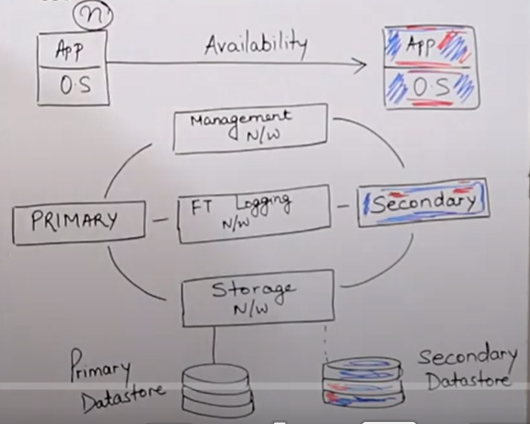 n
App
OS
Availability
App
OS
Management
N/W
PRIMARY
FT Logging
N/W
Secondary
Storage
N/W
Primary
Datastore
Secondary
Datastore